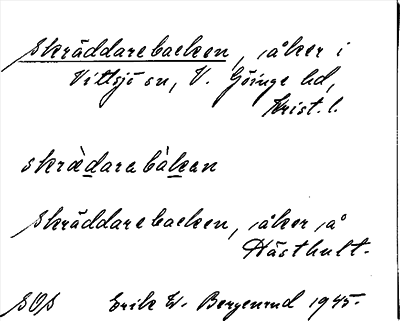 Skräddarebacken, åker i
Vittsjö sn, V. Göinge hd,
Krist. l.
skrædarabàkan
Skräddarebacken, åker å
Hästhult.
SOS Erik W. Bergenrud 1945.